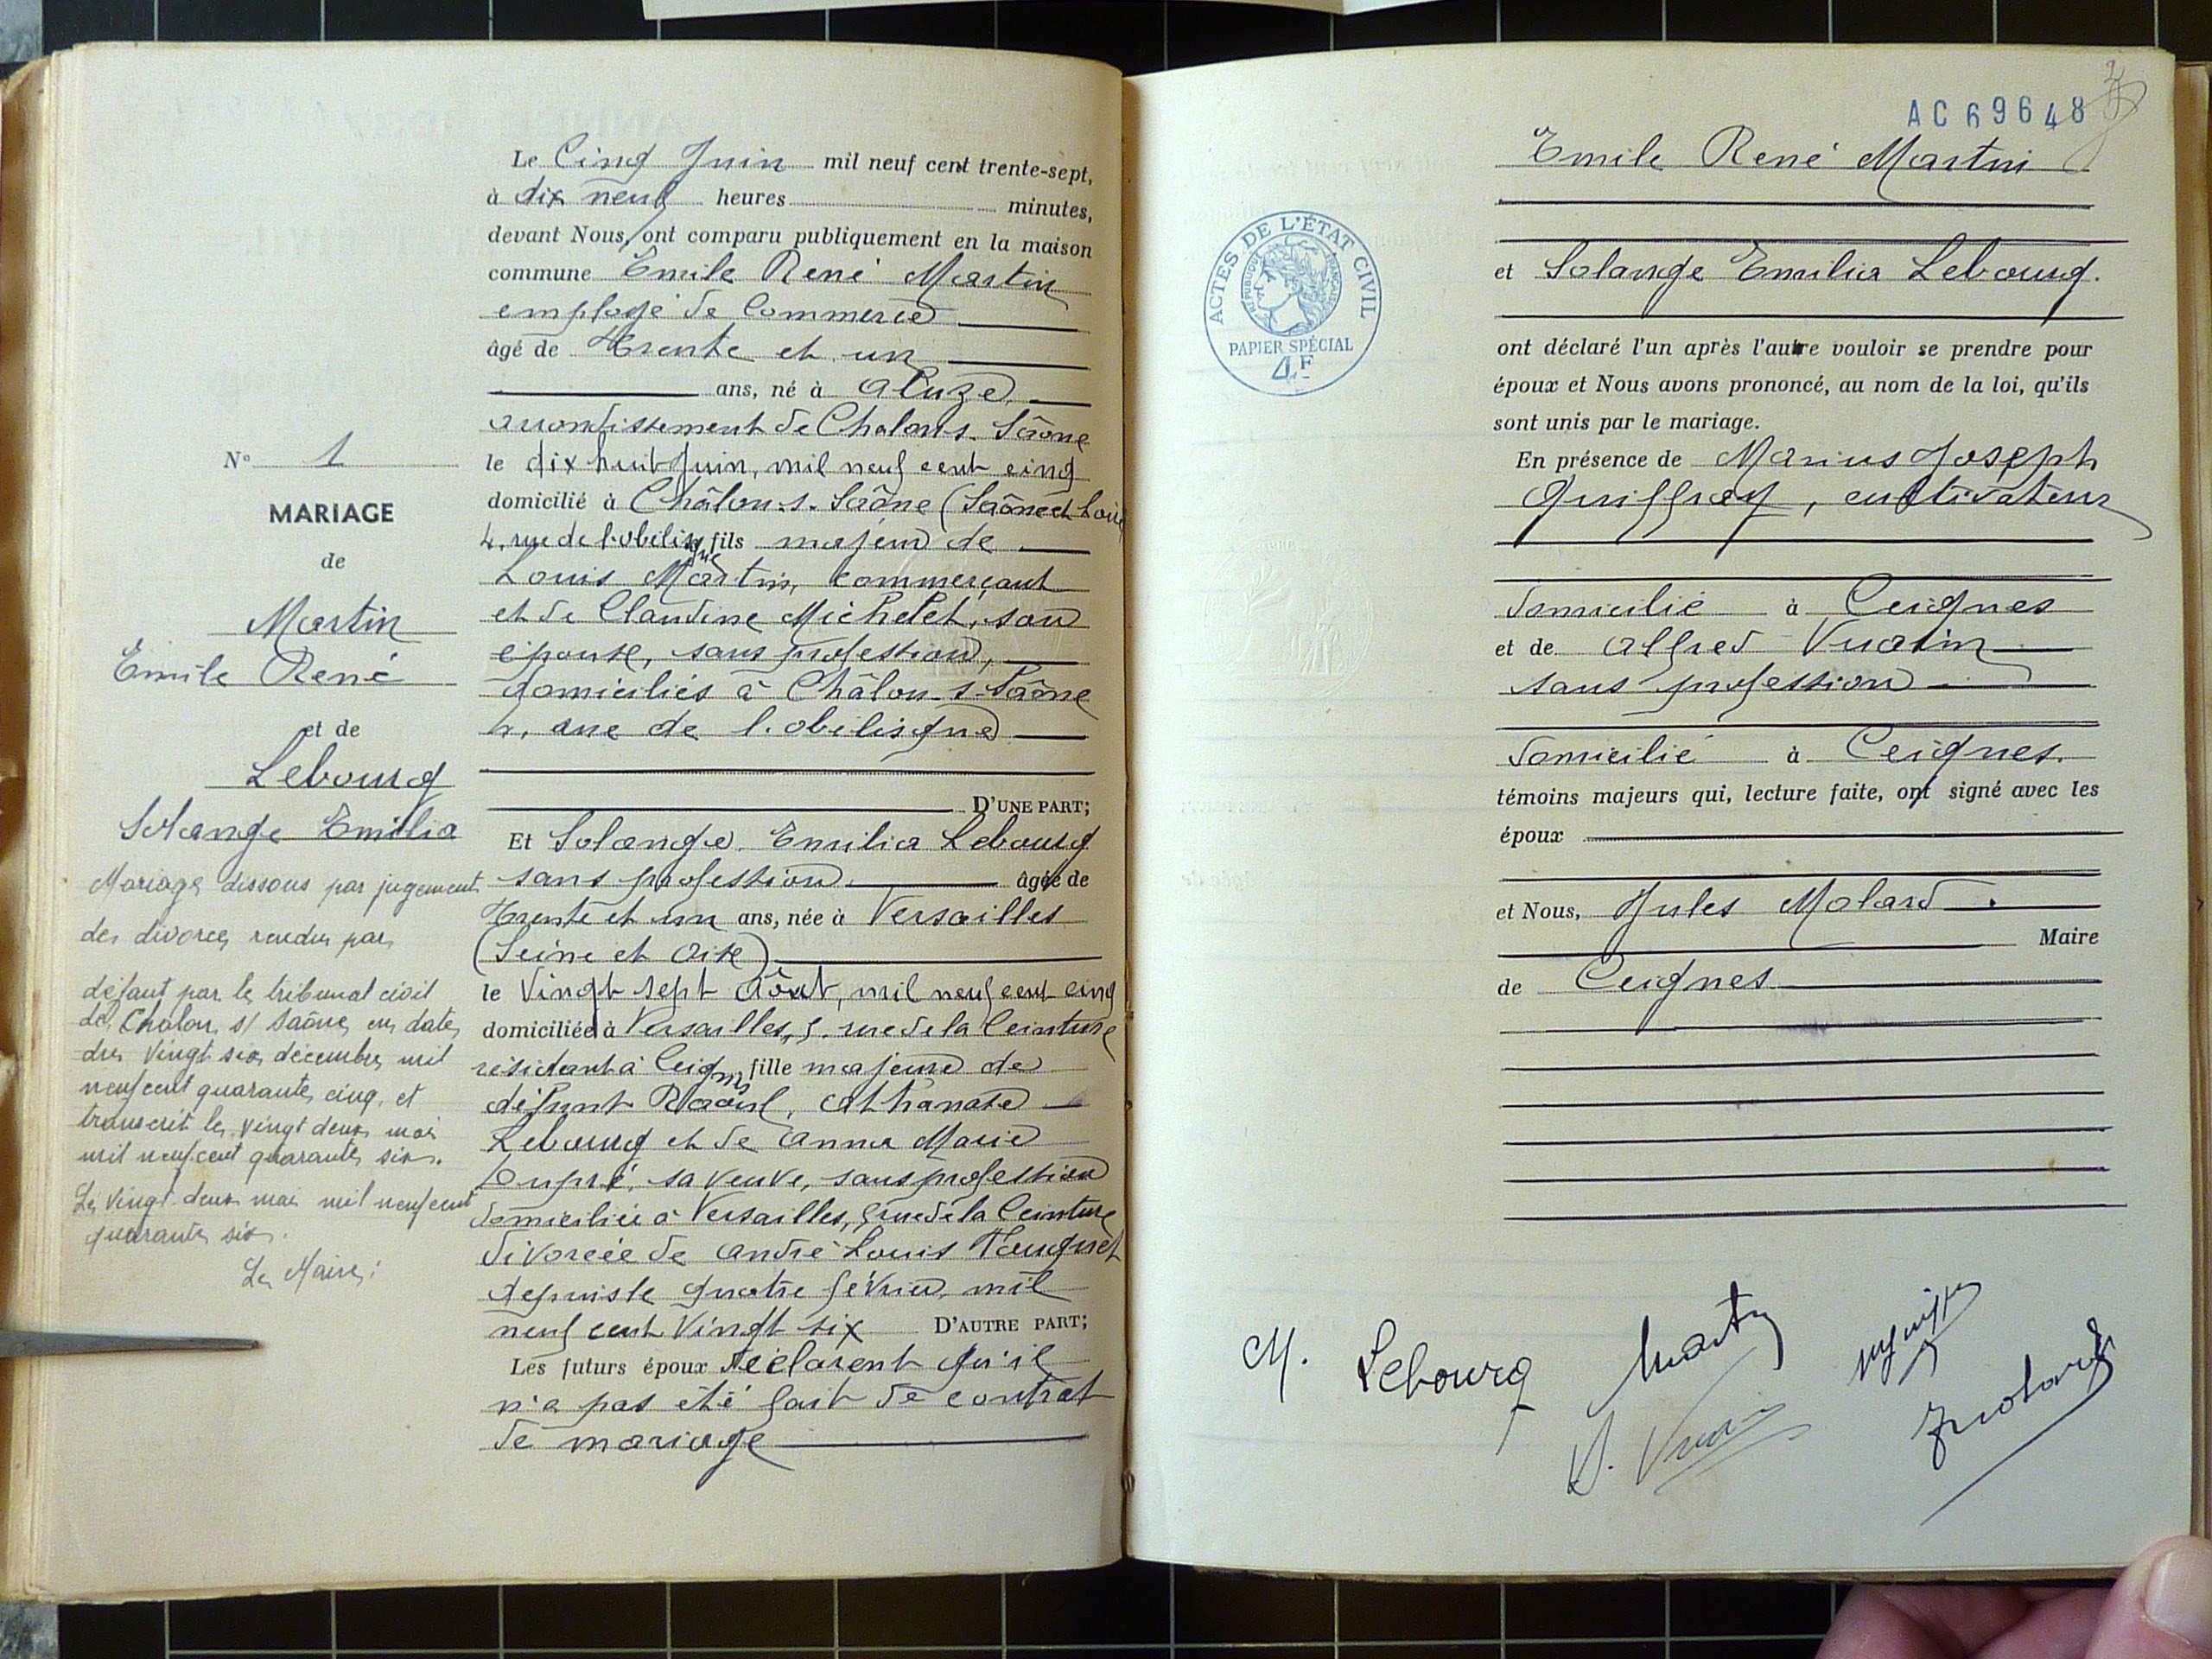 N° 1
MARIAGE
de
Martin
Emile René
et de
Lebourg
Solange Emilia
Mariage dissous par jugement
de divorce rendu par
défaut par le tribunal civil
de Chalon s/ Saône en date
du vingt six décembre mil
neuf cent quarante cinq et
transcrit le vingt deux mai
mil neuf cent quarante six.
Le vingt deux mai mil neuf cent
quarante six.
Le Maire:
Le Cinq Juin mil neuf cent trente-sept,
à dix neuf heures minutes,
devant Nous, ont comparu publiquement en la maison
commune Emile René Martin
employé de Commerce
âgé de Trente et un
ans, né à Aluze,
arrondissement de Chalon s. Saône
le dix huit Juin, mil neuf cent cinq
domicilié à Châlon-s-Saône (Saône et Loire
4, rue de l'obélisque fils majeur de
Louis Martin, commerçant
et de Claudine Michelet, son
épouse, sans profession,
domiciliés à Châlon-s-Saône
4, rue de l'obélisque
D'UNE PART;
Et Solange Emilia Lebourg
sans profession âgée de
Trente et un ans, née à Versailles
(Seine et Oise)
le Vingt sept Août, mil neuf cent cinq
domiciliée à Versailles, 5, rue de la Ceinture
résidant à Ceignes fille majeure de
défunt Raoul, Athanase
Lebourg et de Anna Marie
Dupré, sa veuve, sans profession
domiciliée à Versailles, 5 rue de la Ceinture
divorcée de André Louis
depuis le quatre février mil
neuf cent vingt six D'AUTRE PART;
Les futurs époux déclarent qu'il
n'a pas été fait de contrat
de mariage
AC69648
Emile René Martin
et Solange Emilia Lebourg.
ACTES DE L'ÉTAT CIVIL
RÉPUBLIQUE FRANÇAISE
PAPIER SPÉCIAL
4F
ont déclaré l'un après l'autre vouloir se prendre pour
époux et Nous avons prononcé, au nom de la loi, qu'ils
sont unis par le mariage.
En présence de Marius Joseph
Quiffray, cultivateur
domicilié à Ceignes
et de Alfred Vuarin
sans profession
domicilié à Ceignes.
témoins majeurs qui, lecture faite, ont signé avec les
époux
et Nous, Jules Molard.
Maire
de Ceignes
M. Lebourg Martin